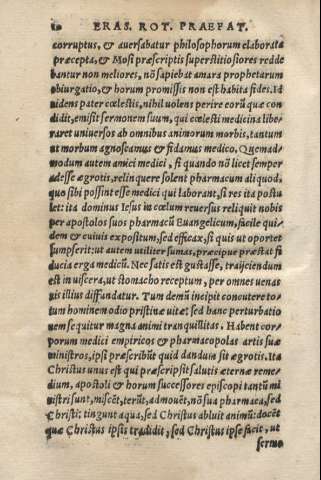 ERAS. ROT. PRAEFAT.
corruptus, & aversabatur philosophorum elaborata
præcepta, & Mosi præscriptis superstitiosiores redde
bantur non meliores, nõ sapiebat amara prophetarum
obiurgatio, & horum promissis non est habita fides. Id
uidens pater cœlestis, nihil uolens perire eorũ quæ con
didit, emisit sermonem suum, qui cœlesti medicina libe/
raret uniuersos ab omnibus animorum morbis, tantum
ut morbum agnoscamus & fidamus medico. Quemad/
modum autem amici medici, si quando nõ licet semper
adesse ægrotis, relinquere solent pharmacum aliquod,
quo sibi possint esse medici qui laborant, si res ita postu
let: ita dominus Iesus in cœlum reuersus reliquit nobis
per apostolos suos pharmacũ Euangelicum, facile qui/
dem & cuiuis expositum, sed efficax, si quis ut oportet
sumpserit: ut autem utiliter sumas, præcipue præstat fi
ducia erga medicũ. Nec satis est gustasse, traijciendum
est in uiscera, ut stomacho receptum, per omnes uenas
uis illius diffundatur. Tum demũ incipit concutere to/
tum hominem odio pristinæ uitæ: sed hanc perturbatio
nem sequitur magna animi tranquillitas. Habent cor/
porum medici empiricos & pharmacopolas artis suæ
ministros, ipsi præscribũt quid dandum sit ægrotis. Ita
Christus unus est qui præscripsit salutis æternæ reme/
dium, apostoli & horum successores episcopi tantũ mi
nistri sunt, miscẽt, terũt, admouẽt, nõ sua pharmaca, sed
Christi: tingunt aqua, sed Christus abluit animũ: docẽt
quæ Christus ipsis tradidit, sed Christus ipse facit, ut
sermo